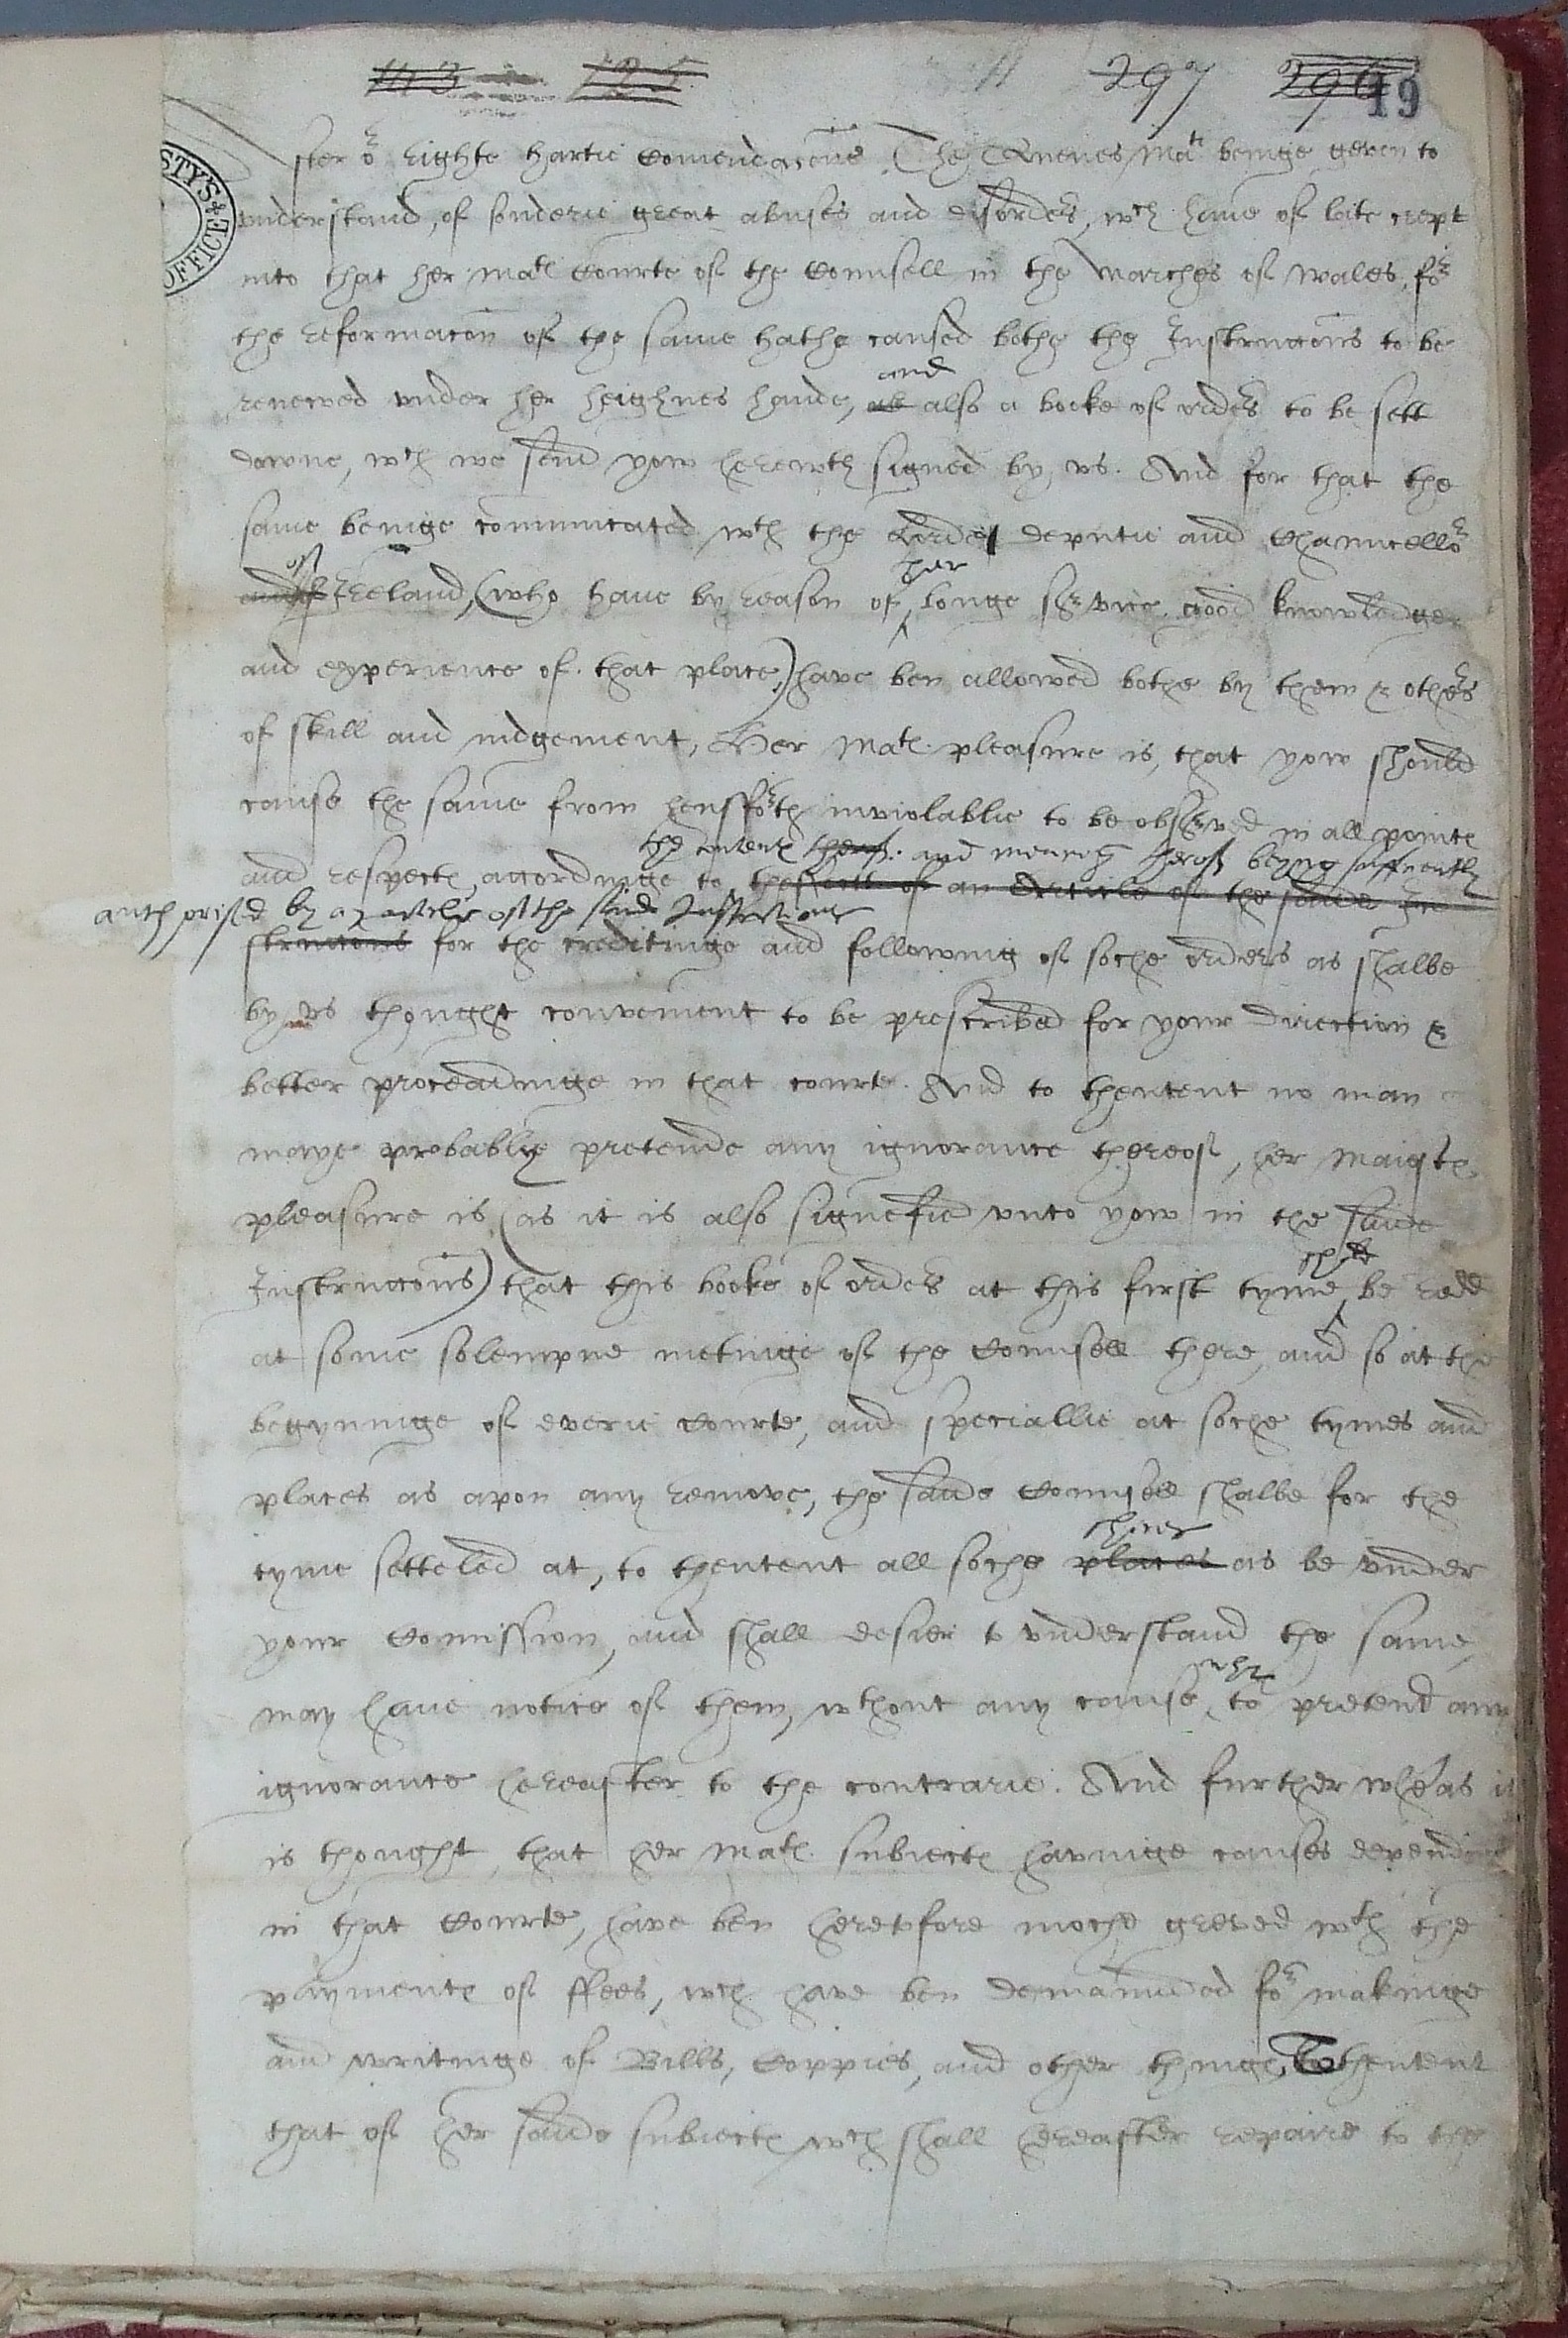 143 125 297 296 19
STY'S
OFFICE
fter or righte hartie Comendacons. The Quenes Matie beinge geven to
understand, of sonderie great abuses and disorders, wch have of late crept
into that her Mats Courte of the Counsell in the Marches of Wales, for
the reformacon of the same hathe caused bothe the Instructions to be
and
renewed under her heighnes hande, as also a booke of orders to be sett
downe, wch we send yow herewth signed by us. And for that the
same beinge communicated wth the Lorde deputie and Chauncellor
of her
and of Ireland, (who have by reason of longe service, good knowledge
and experience of that place,) have ben allowed bothe by them & others
of skill and iudgement, Her Mats pleasure is, that yow should
cause the same from hensforth inviolablie to be observed in all pointes
the intent therof and meaning therof beyng sufficiently
and respectes accordinge to the effecte of an Article of the saide In
authorised by an article of the said Instructions
structions for the creditinge and following of soche orders as shalbe
by us thought convenient to be prescribed for your direction &
better proceadinge in that courte. And to thentent no man
maye probablye pretende any ignorance thereof, her Maiestes
pleasure is (as it is also signefied unto yow in the saide
shall
Instructions) that this booke of orders at this first tyme be redd
at some solempne metinge of the Counsell there, and so at the
begynninge of everie Courte, and speciallie at soche tymes and
places as apon any remove, the saide Counsell shalbe for the
shires
tyme setteled at, to thentent all soche places as be under
your Comission, and shall desier to understand the same,
why
may have notice of them, wthout any cause to pretend any
ignorance hereafter to the contrarie. And further wheras it
is thought, that her Mats subiectes havinge causes depending
in that Courte, have ben heretofore moche greved wth the
paymentes of ffees, wch have ben demaunded for makinge
and writinge of Bills, Coppies, and other thinges, To thentent
that of her saide subiectes wch shall hereafter repaire to the